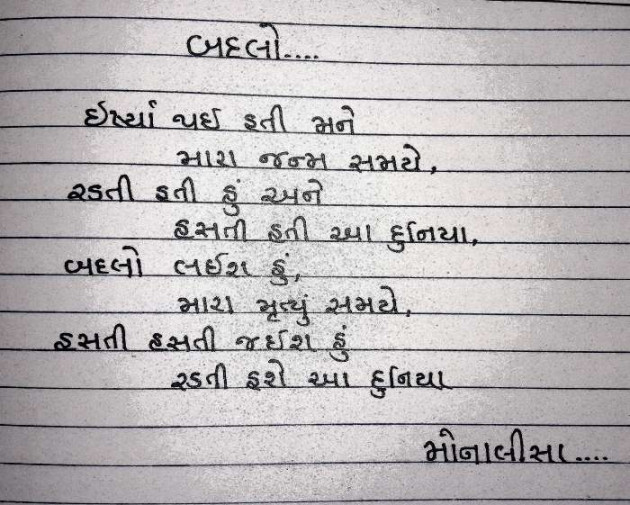 બદલો....
ઈર્ષ્યા થઈ હતી મને
મારા જન્મ સમયે,
રડતી હતી હું અને
હસતી હતી આ દુનિયા,
બદલો લઈશ હું,
મારા મૃત્યું સમયે,
હસતી હસતી જઈશ હું
રડતી હશે આ દુનિયા
મોનાલીસા....